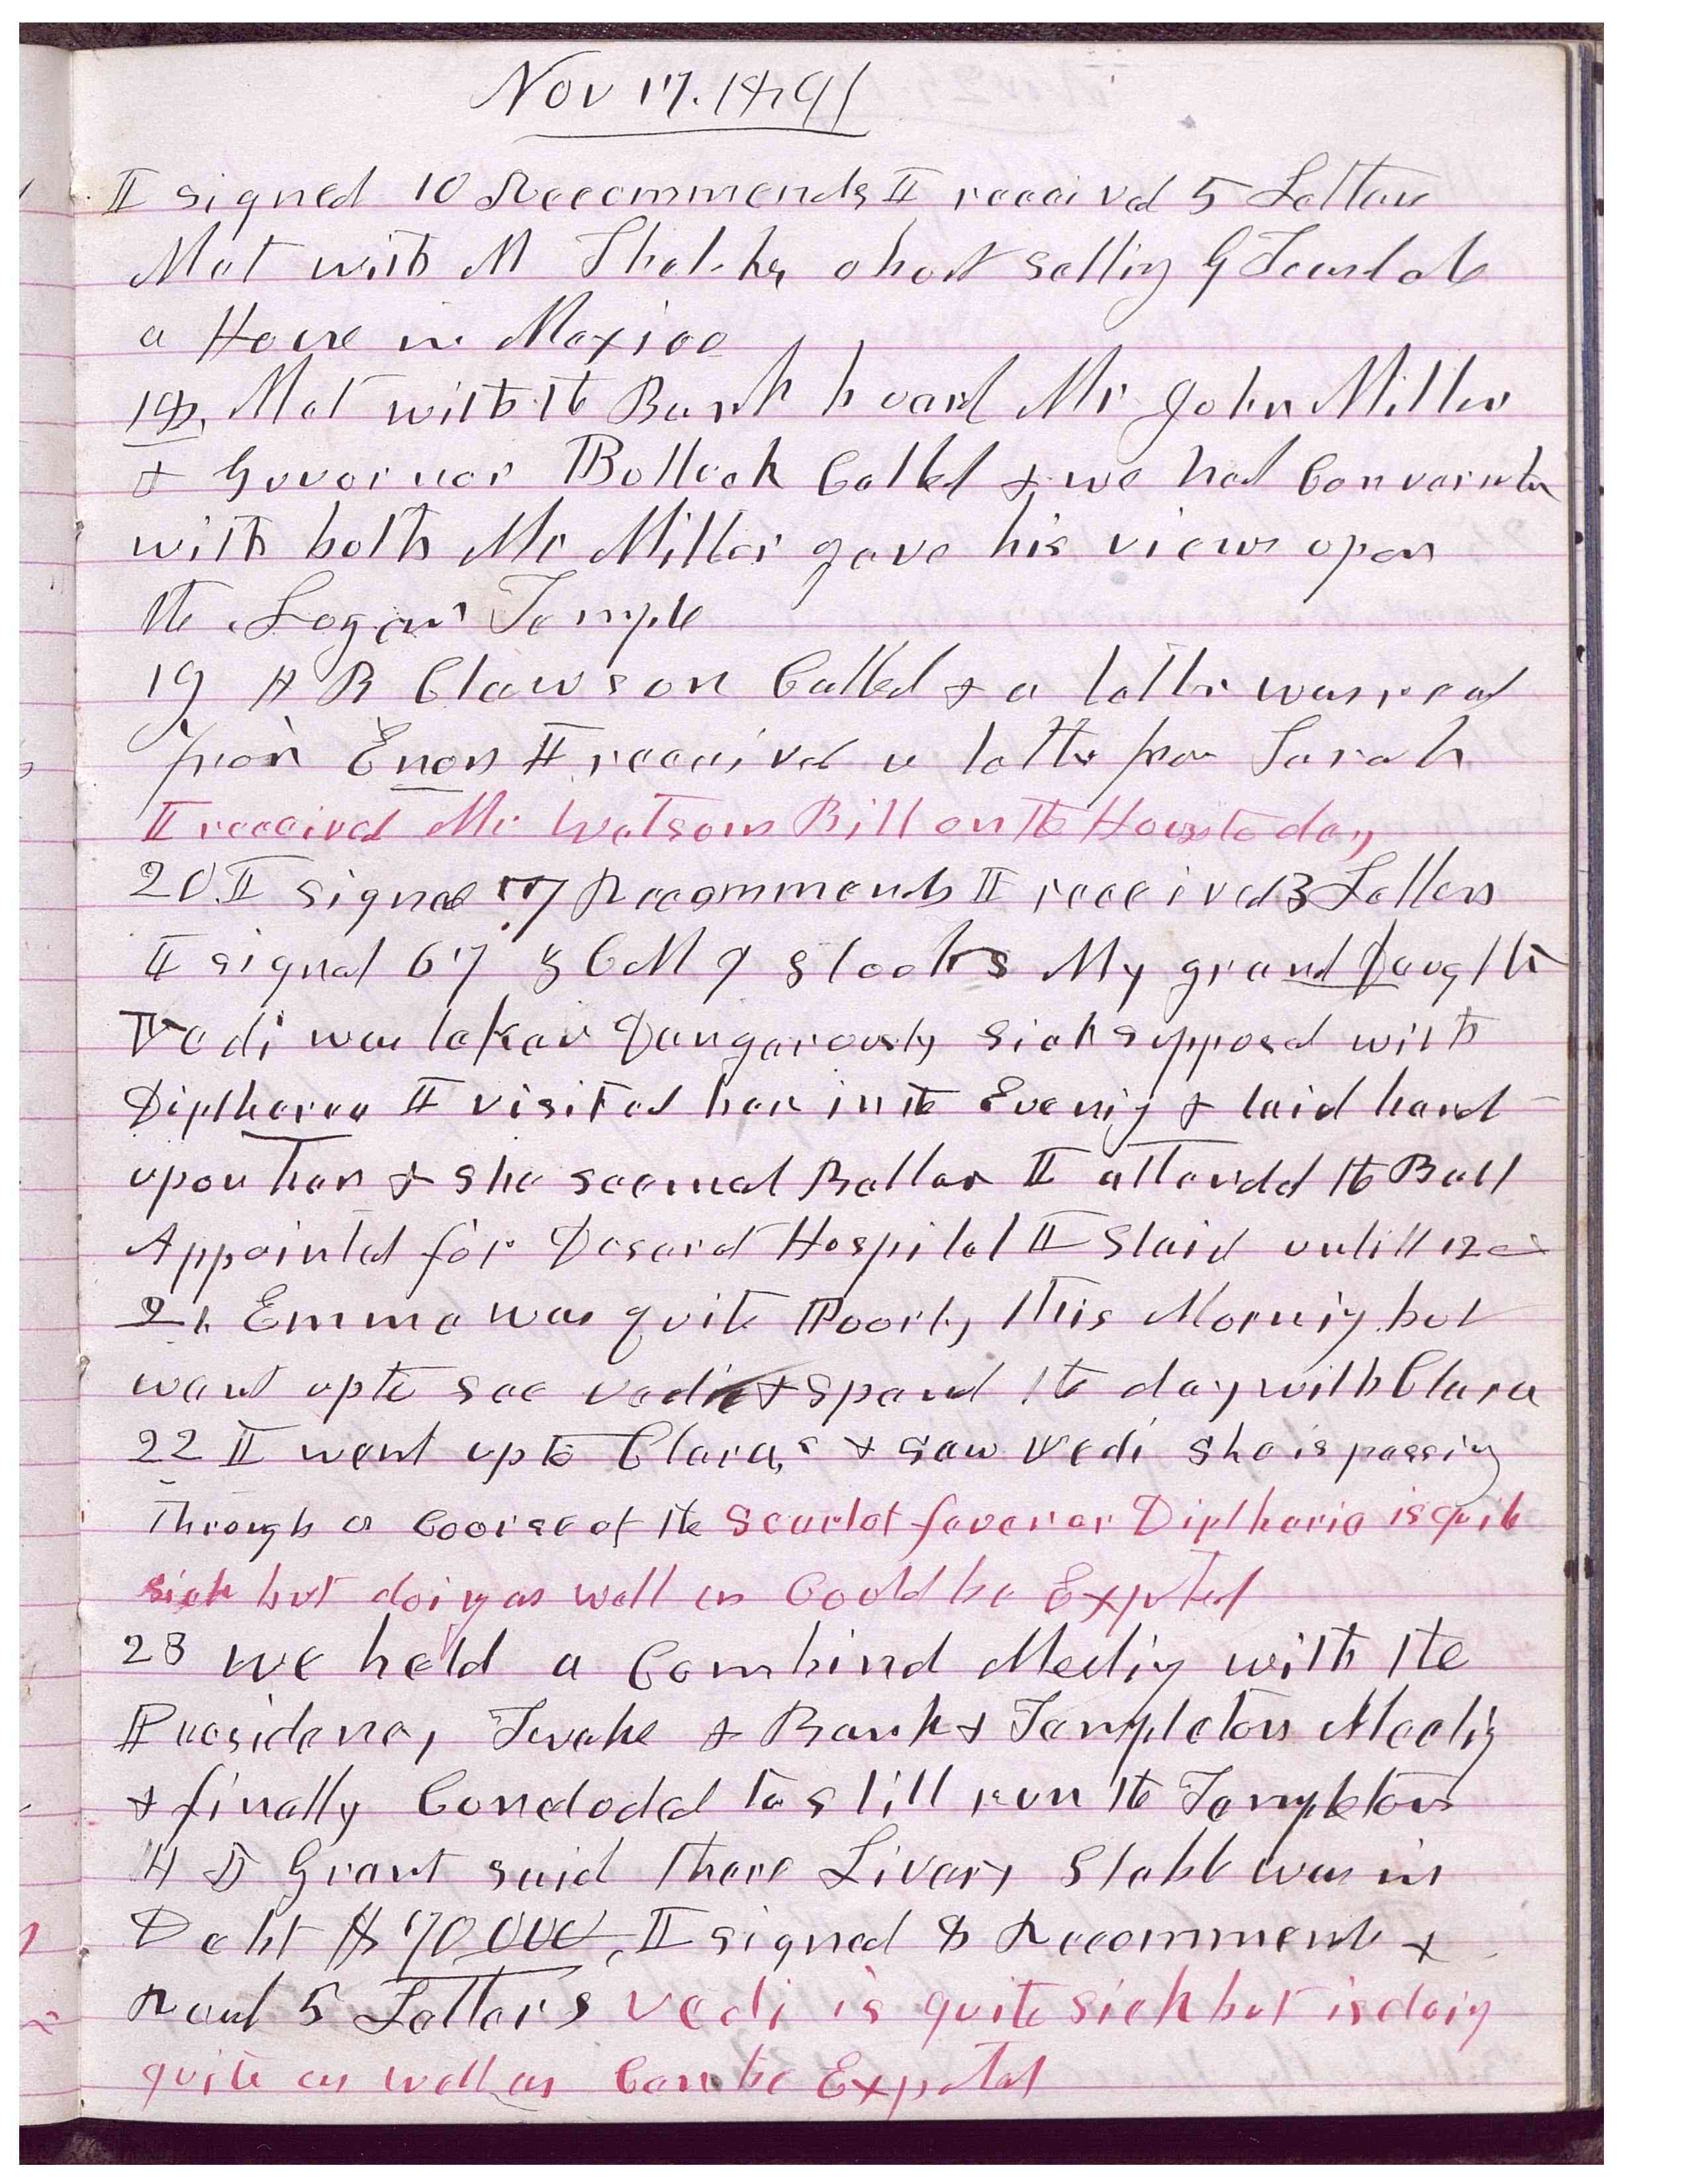 Nov 17. 1891
I signed 10 Recommends I received 5 Letters
Met with M Thatcher about selling G Teasdale
a House in Mexico
18. Met with the Bank board Mr John Miller
& Governor Bullock Called & we had
with both Mr Miller gave his views upon
the Logan Temple
19 H B Clawson Called & a letter was read
from Enon I received a letter from Sarah
I received Mr Watson Bill on the House to day
20 I signed 17 Recommends I received 3 Letters
I signed 67 Z C M I Stocks My grand Daughter
Vedi was taken Dangerously sick supposed with
Diptherea I visited her in the Evenig & laid hand
upon her & she seemed Better I attended the Ball
Appointed for Deseret Hospital I Staid untill 12
21. Emma was quite Poorly this Mornig but
went up to see vedi & spend the day with Clara
22 I went up to Clara,s & saw Vedi she is passing
Through a Course of the Scarlet fever or Diptheria is quite
sick but doing as well as Could be Expted
23 we held a Combind Meetig with the
Presidency, Twelve & Bank & Templeton Meetig
& finally Concluded to still run the Templeton
H J Grant said there Livery Stable was in
Debt $70,000, I signed 8 Recommends &
Read 5 Letters vedi is quite sick but is doig
quite as well as Can be Expted